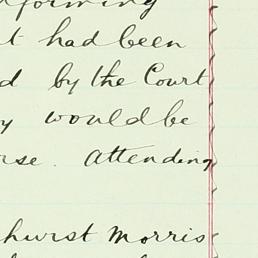 forming
t had been
d by the Court
y would be
rse. Attending
hurst Morris